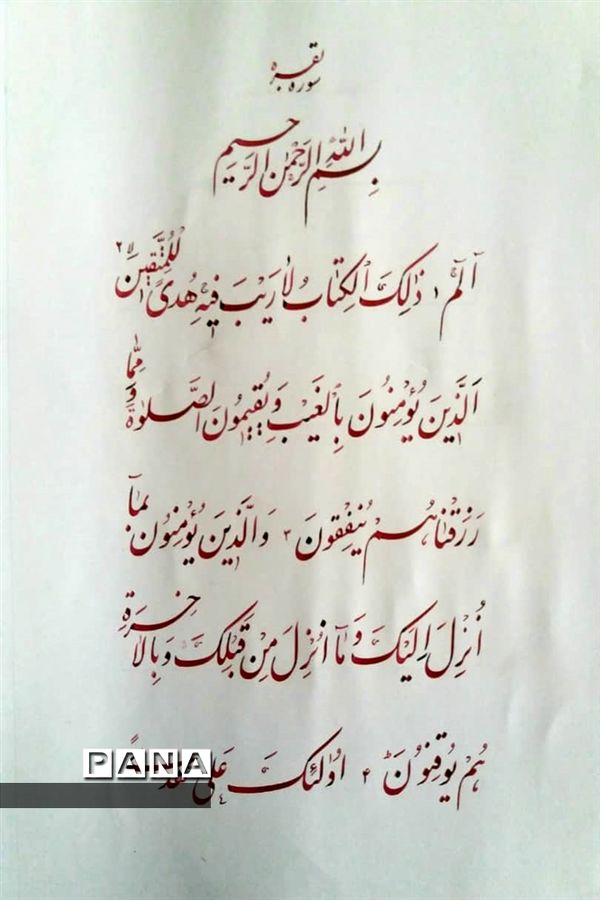 سوره بقره
بِسْمِ اللّٰهِ الرَّحْمٰنِ الرَّحیمِ
آلٓمٓ ۱ ذٰلِكَ الْكِتٰابُ لٰا رَيْبَ فيهِ هُدىً لِلْمُتَّقينَ ۲
اَلَّذينَ يُؤْمِنُونَ بِالْغَيْبِ وَ يُقيمُونَ الصَّلوٰةَ وَ مِمّٰا
رَزَقْنٰاهُمْ يُنْفِقُونَ ۳ وَالَّذينَ يُؤْمِنُونَ بِمٰآ
اُنْزِلَ اِلَيْكَ وَ مٰآ اُنْزِلَ مِنْ قَبْلِكَ وَ بِالْاٰخِرَةِ
هُمْ يُوقِنُونَ ۴ اُولٰئِكَ عَلىٰ هُدىً
PANA